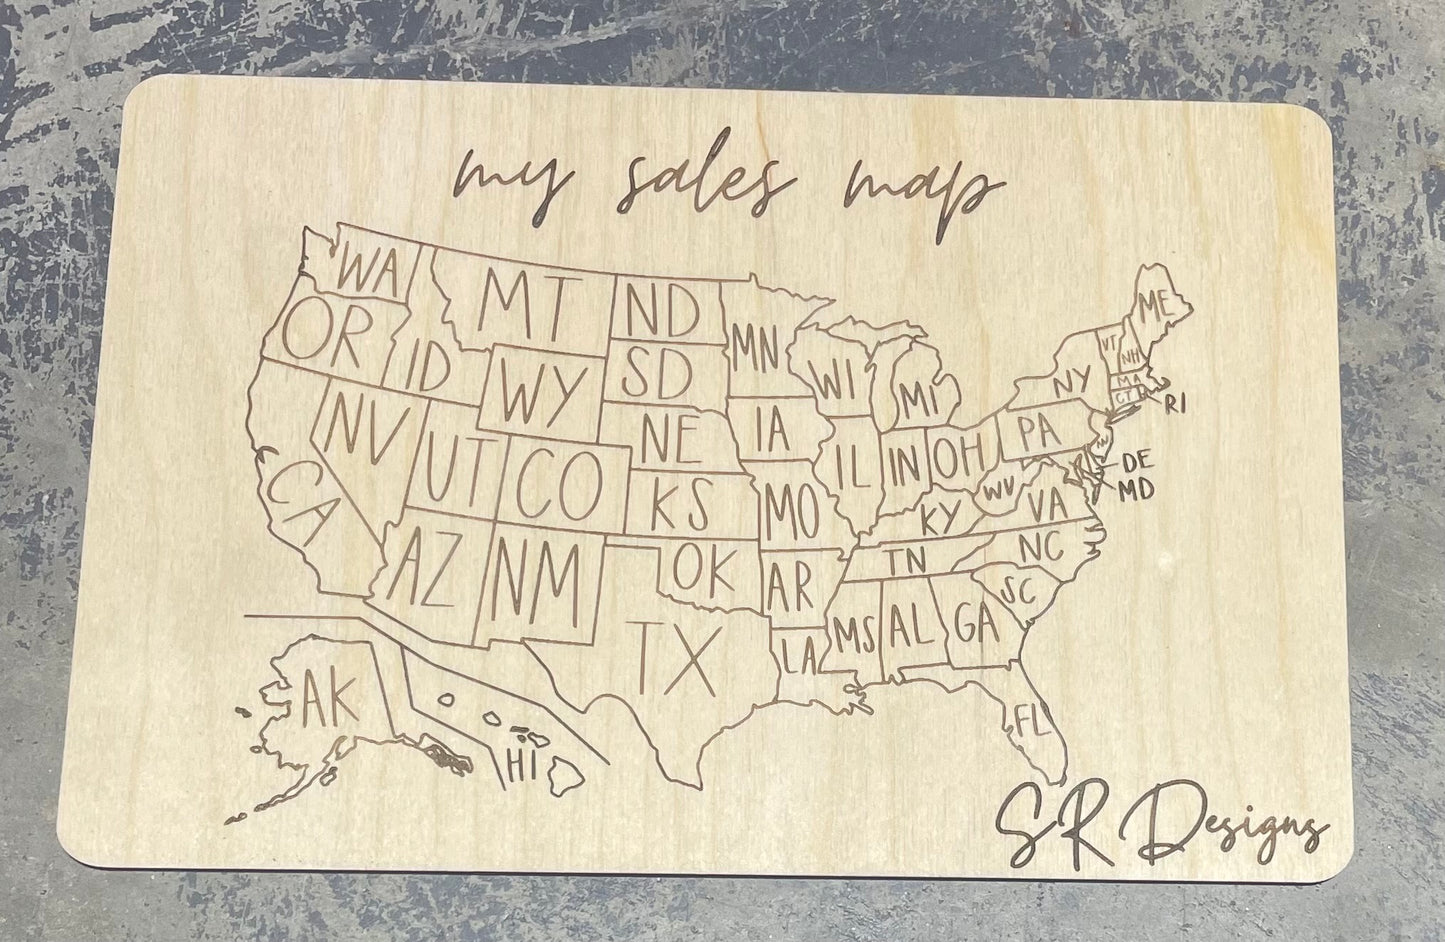 my sales map
WA
MT
ND
MN
ME
OR
ID
SD
WI
MI
VT
NH
WY
NY
MA
CT
RI
NV
NE
IA
PA
NJ
UT
CO
IL
IN
OH
DE
MD
CA
KS
MO
WV
VA
KY
AZ
NM
OK
AR
TN
NC
SC
TX
LA
MS
AL
GA
AK
HI
FL
SR Designs